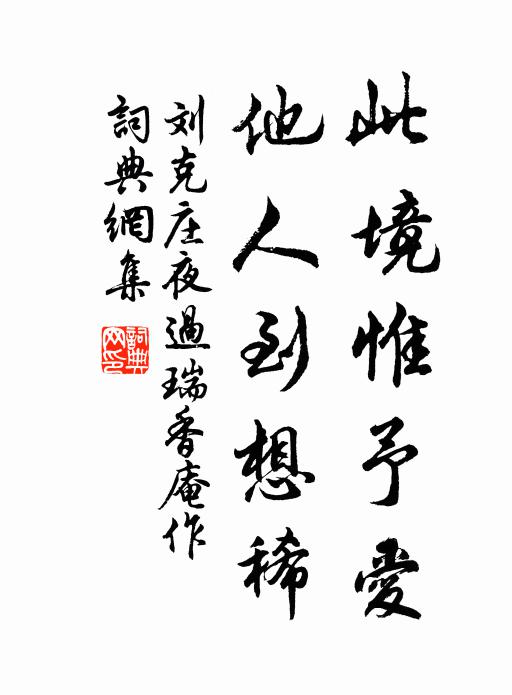 此境惟予愛
他人到想稀
刘克庄夜過瑞香庵作
詞典網集
詞典网印